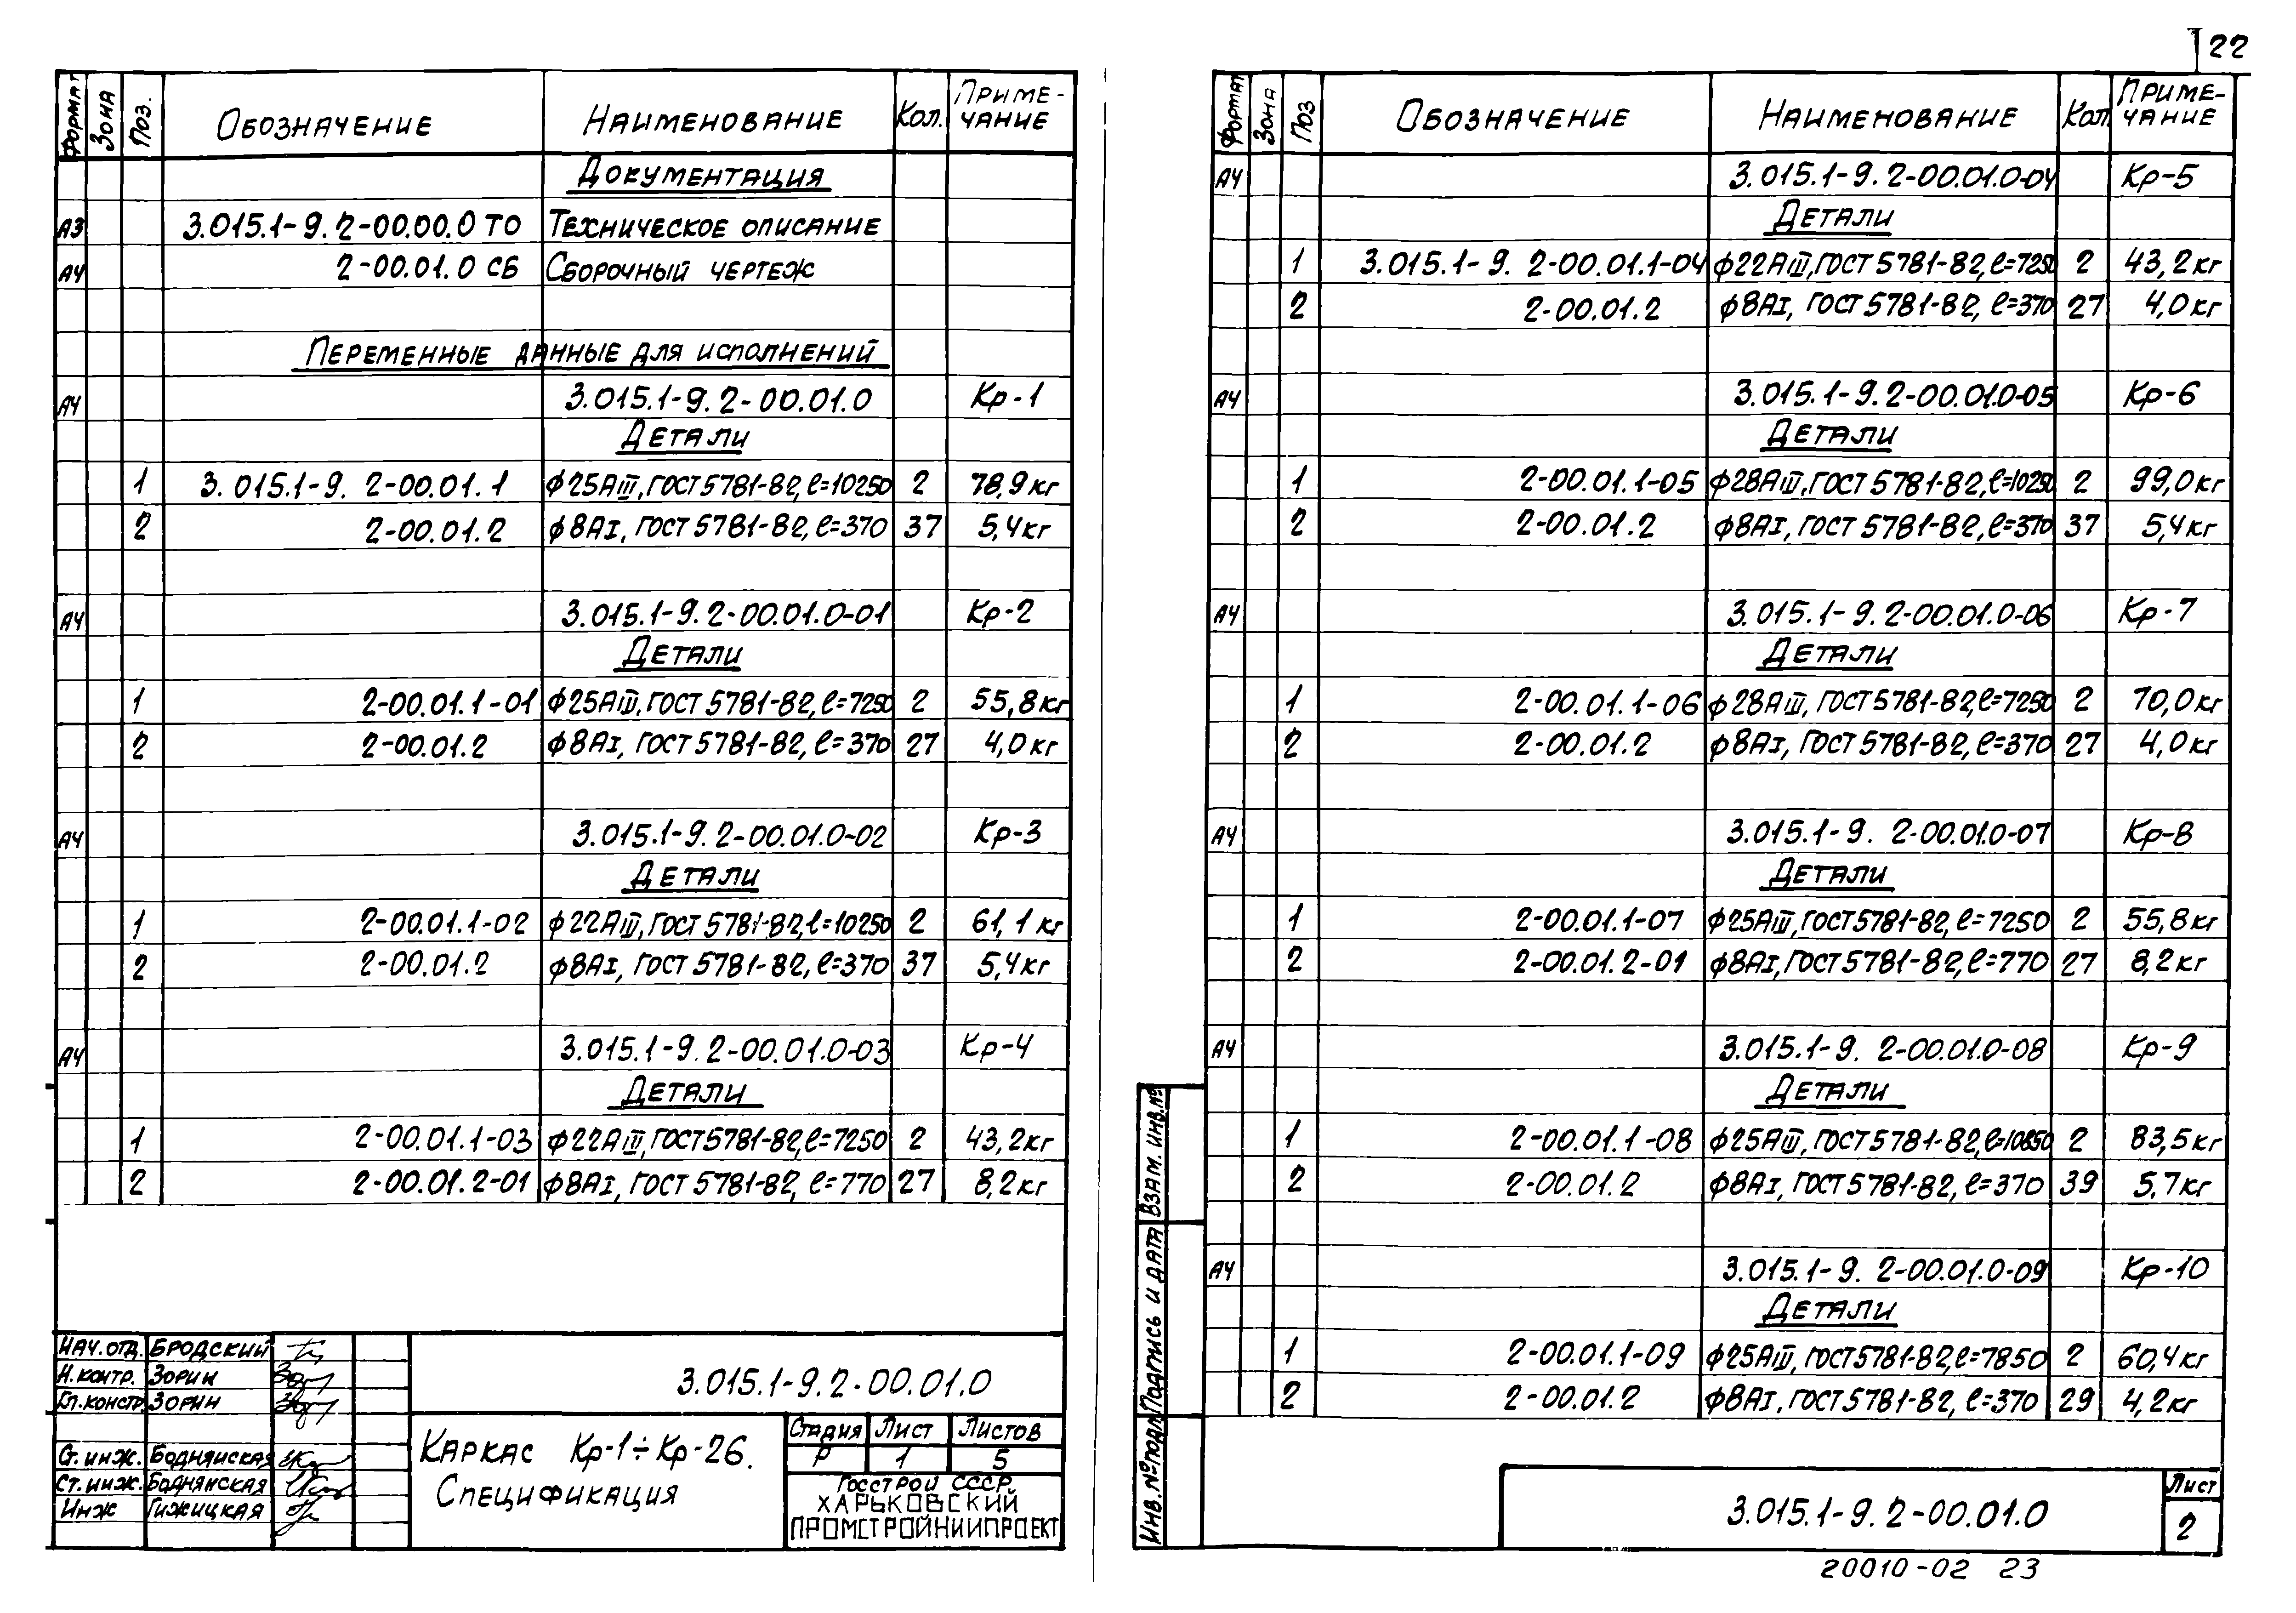 22
Формат Зона Поз. Обозначение Наименование Кол. Приме-
чание
Документация
А3 3.015.1-9.2-00.00.0 ТО Техническое описание
А4 2-00.01.0 СБ Сборочный чертеж
Переменные данные для исполнений
А4 3.015.1-9.2-00.01.0 Кр-1
Детали
1 3.015.1-9.2-00.01.1 ф25АIII, ГОСТ 5781-82, ℓ=10250 2 78,9кг
2 2-00.01.2 ф8АI, ГОСТ 5781-82, ℓ=370 37 5,4кг
А4 3.015.1-9.2-00.01.0-01 Кр-2
Детали
1 2-00.01.1-01 ф25АIII, ГОСТ 5781-82, ℓ=7250 2 55,8кг
2 2-00.01.2 ф8АI, ГОСТ 5781-82, ℓ=370 27 4,0кг
А4 3.015.1-9.2-00.01.0-02 Кр-3
Детали
1 2-00.01.1-02 ф22АIII, ГОСТ 5781-82, ℓ=10250 2 61,1кг
2 2-00.01.2 ф8АI, ГОСТ 5781-82, ℓ=370 37 5,4кг
А4 3.015.1-9.2-00.01.0-03 Кр-4
Детали
1 2-00.01.1-03 ф22АIII, ГОСТ 5781-82, ℓ=7250 2 43,2кг
2 2-00.01.2-01 ф8АI, ГОСТ 5781-82, ℓ=770 27 8,2кг
Нач.отд. Бродский
Н.контр. Зорин
Гл.констр. Зорин
Ст.инж. Боднянская
Ст.инж. Боднянская
Инж Гижицкая
3.015.1-9.2-00.01.0
Каркас Кр-1÷Кр-26.
Спецификация
Стадия Лист Листов
Р 1 5
Госстрой СССР
Харьковский
Промстройниипроект
Формат Зона Поз Обозначение Наименование Кол. Приме-
чание
А4 3.015.1-9.2-00.01.0-04 Кр-5
Детали
1 3.015.1-9.2-00.01.1-04 ф22АIII, ГОСТ 5781-82, ℓ=7250 2 43,2кг
2 2-00.01.2 ф8АI, ГОСТ 5781-82, ℓ=370 27 4,0кг
А4 3.015.1-9.2-00.01.0-05 Кр-6
Детали
1 2-00.01.1-05 ф28АIII, ГОСТ 5781-82, ℓ=10250 2 99,0кг
2 2-00.01.2 ф8АI, ГОСТ 5781-82, ℓ=370 37 5,4кг
А4 3.015.1-9.2-00.01.0-06 Кр-7
Детали
1 2-00.01.1-06 ф28АIII, ГОСТ 5781-82, ℓ=7250 2 70,0кг
2 2-00.01.2 ф8АI, ГОСТ 5781-82, ℓ=370 27 4,0кг
А4 3.015.1-9.2-00.01.0-07 Кр-8
Детали
1 2-00.01.1-07 ф25АIII, ГОСТ 5781-82, ℓ=7250 2 55,8кг
2 2-00.01.2-01 ф8АI, ГОСТ 5781-82, ℓ=770 27 8,2кг
А4 3.015.1-9.2-00.01.0-08 Кр-9
Детали
1 2-00.01.1-08 ф25АIII, ГОСТ 5781-82, ℓ=10850 2 83,5кг
2 2-00.01.2 ф8АI, ГОСТ 5781-82, ℓ=370 39 5,7кг
А4 3.015.1-9.2-00.01.0-09 Кр-10
Детали
1 2-00.01.1-09 ф25АIII, ГОСТ 5781-82, ℓ=7850 2 60,4кг
2 2-00.01.2 ф8АI, ГОСТ 5781-82, ℓ=370 29 4,2кг
Взам. инв.№
Подпись и дата
Инв.№ подл
3.015.1-9.2-00.01.0
Лист
2
20010-02 23